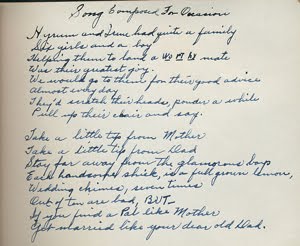 Song Composed For Occasion
Hyrum and Irene had quite a family
Six girls and a boy
Helping them to land a mate
Was their greatest joy.
We would go to them for their good advice
Almost every day
They'd scratch their heads, ponder a while
Pull up their chair and say.
Take a little tip from Mother
Take a little tip from Dad
Stay far away from the glamorous boys
Each handsome shiek, is a full grown lemon,
Wedding chimes, seven times
Out of ten are bad, BUT-
If you find a Pal like Mother
Get married like your dear old Dad.